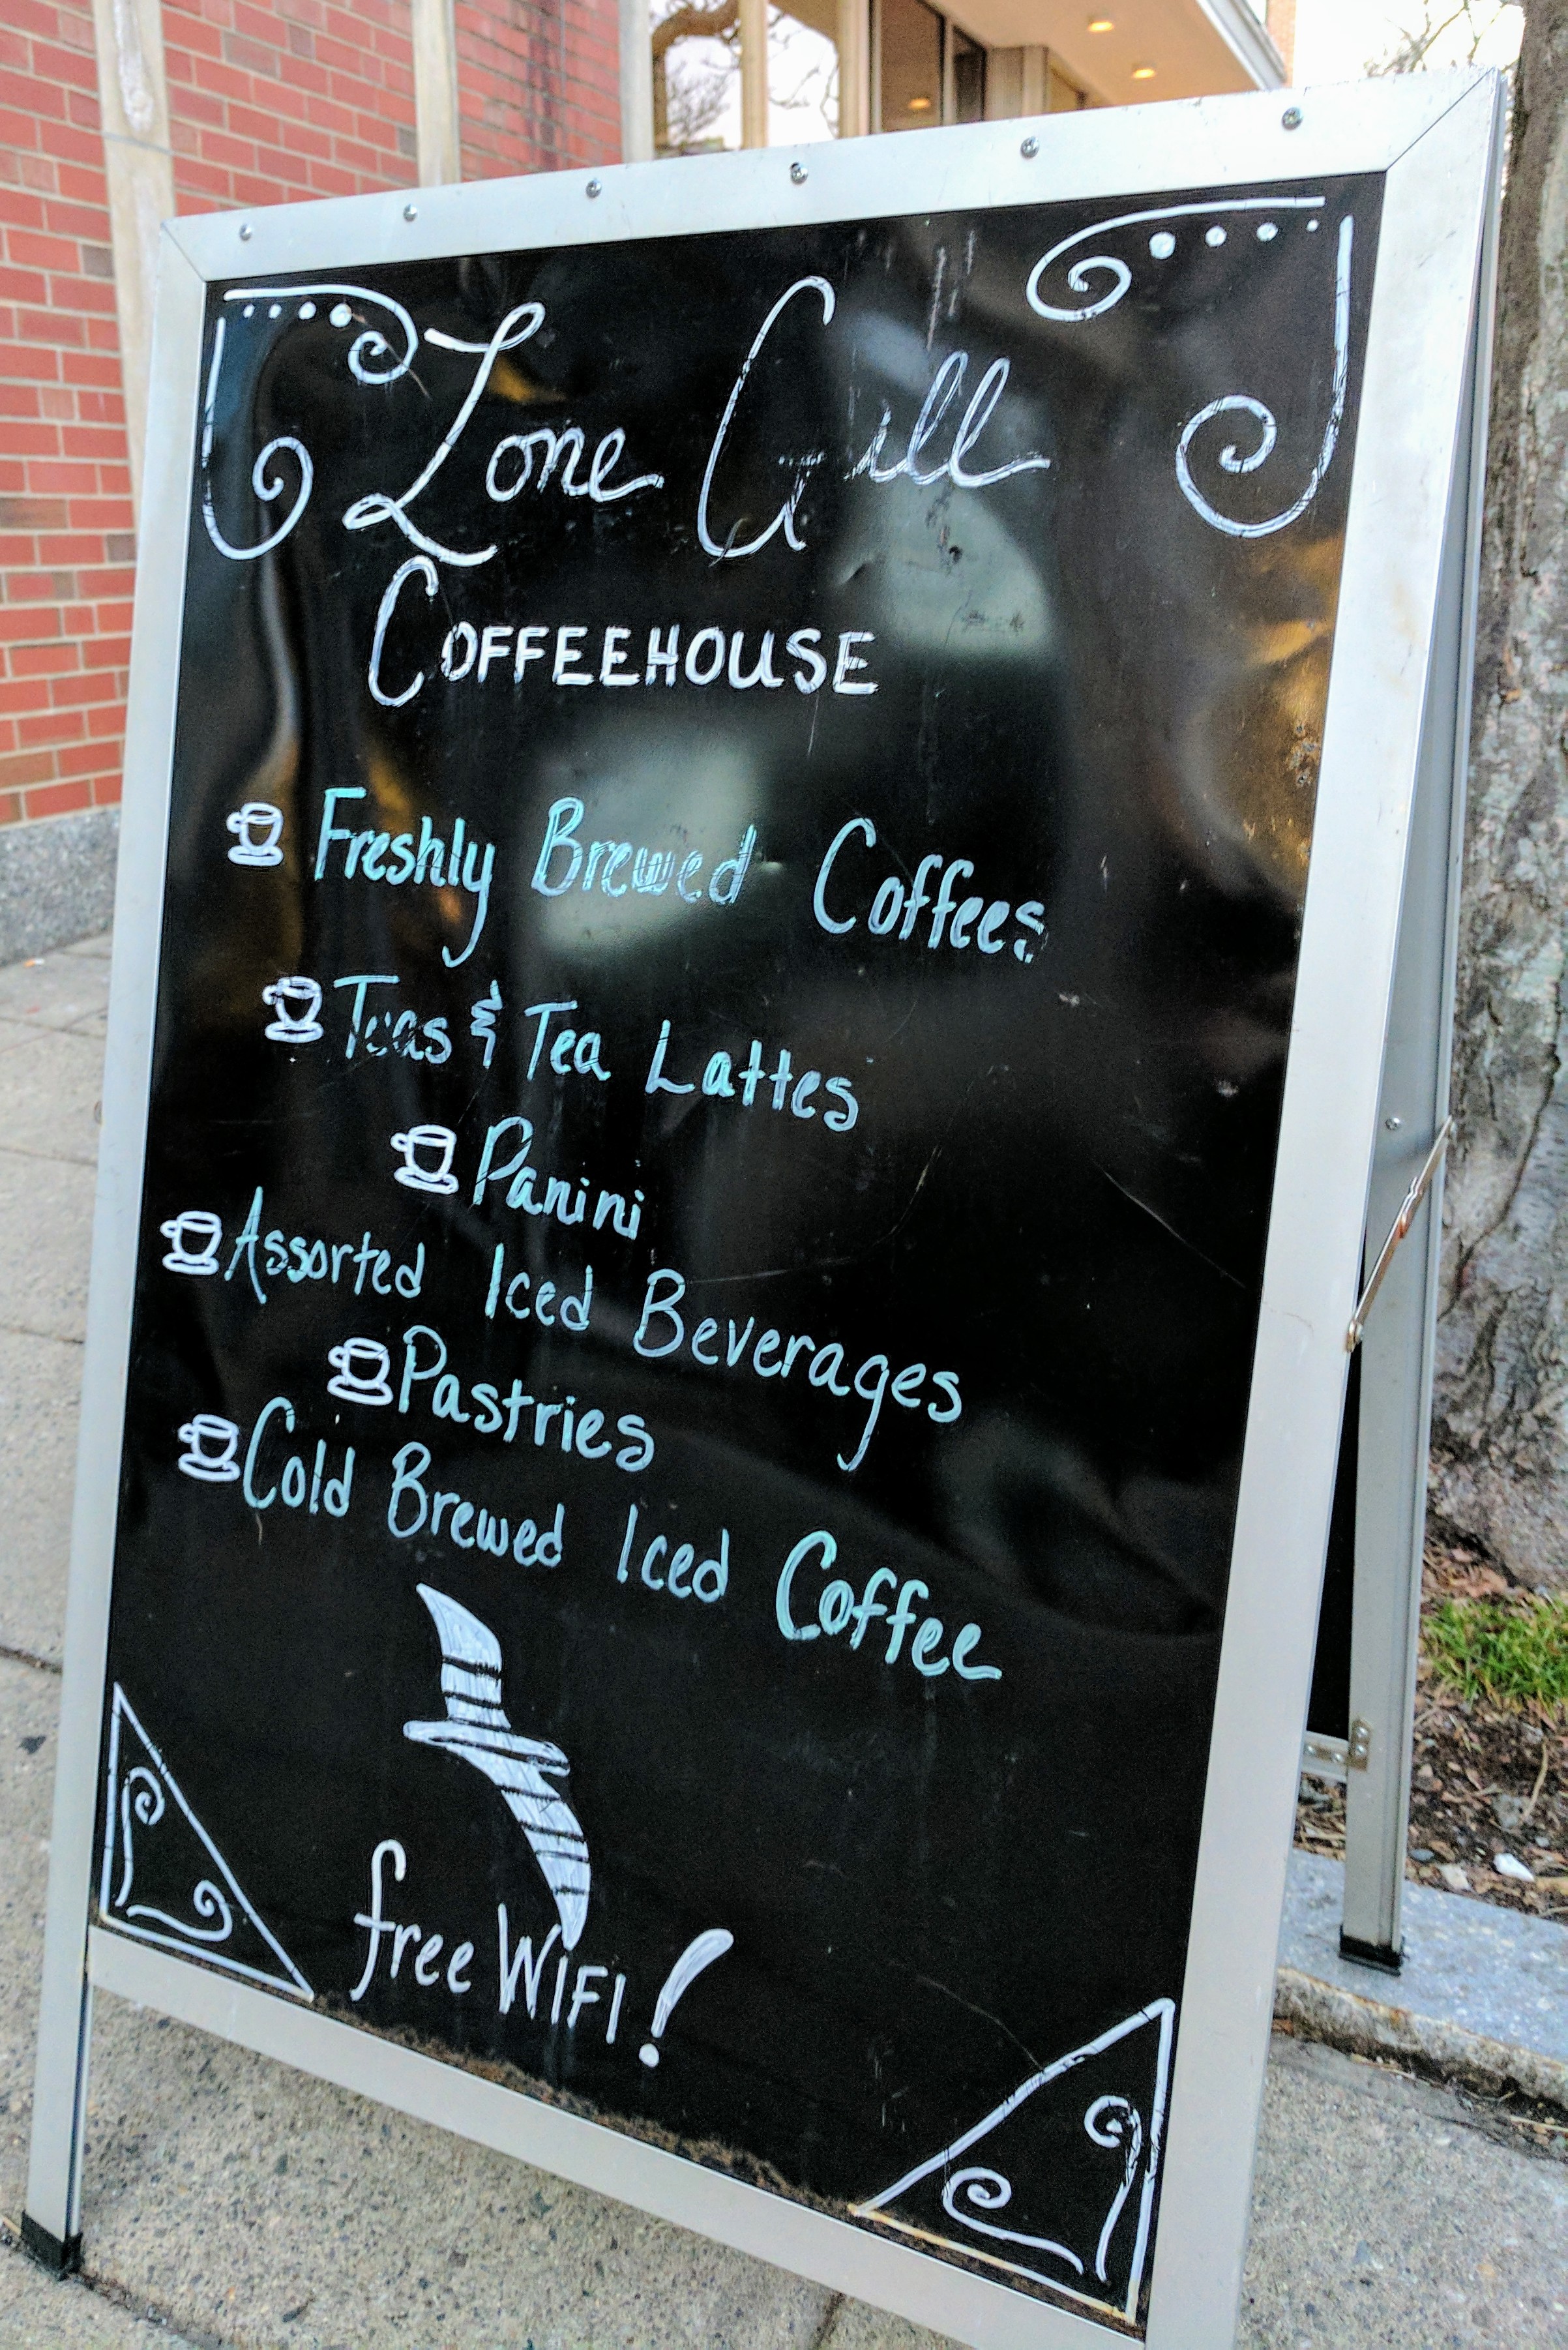 Lone Gull
COFFEEHOUSE
Freshly Brewed Coffees
Teas & Tea Lattes
Panini
Assorted Iced Beverages
Pastries
Cold Brewed Iced Coffee
free WIFI!